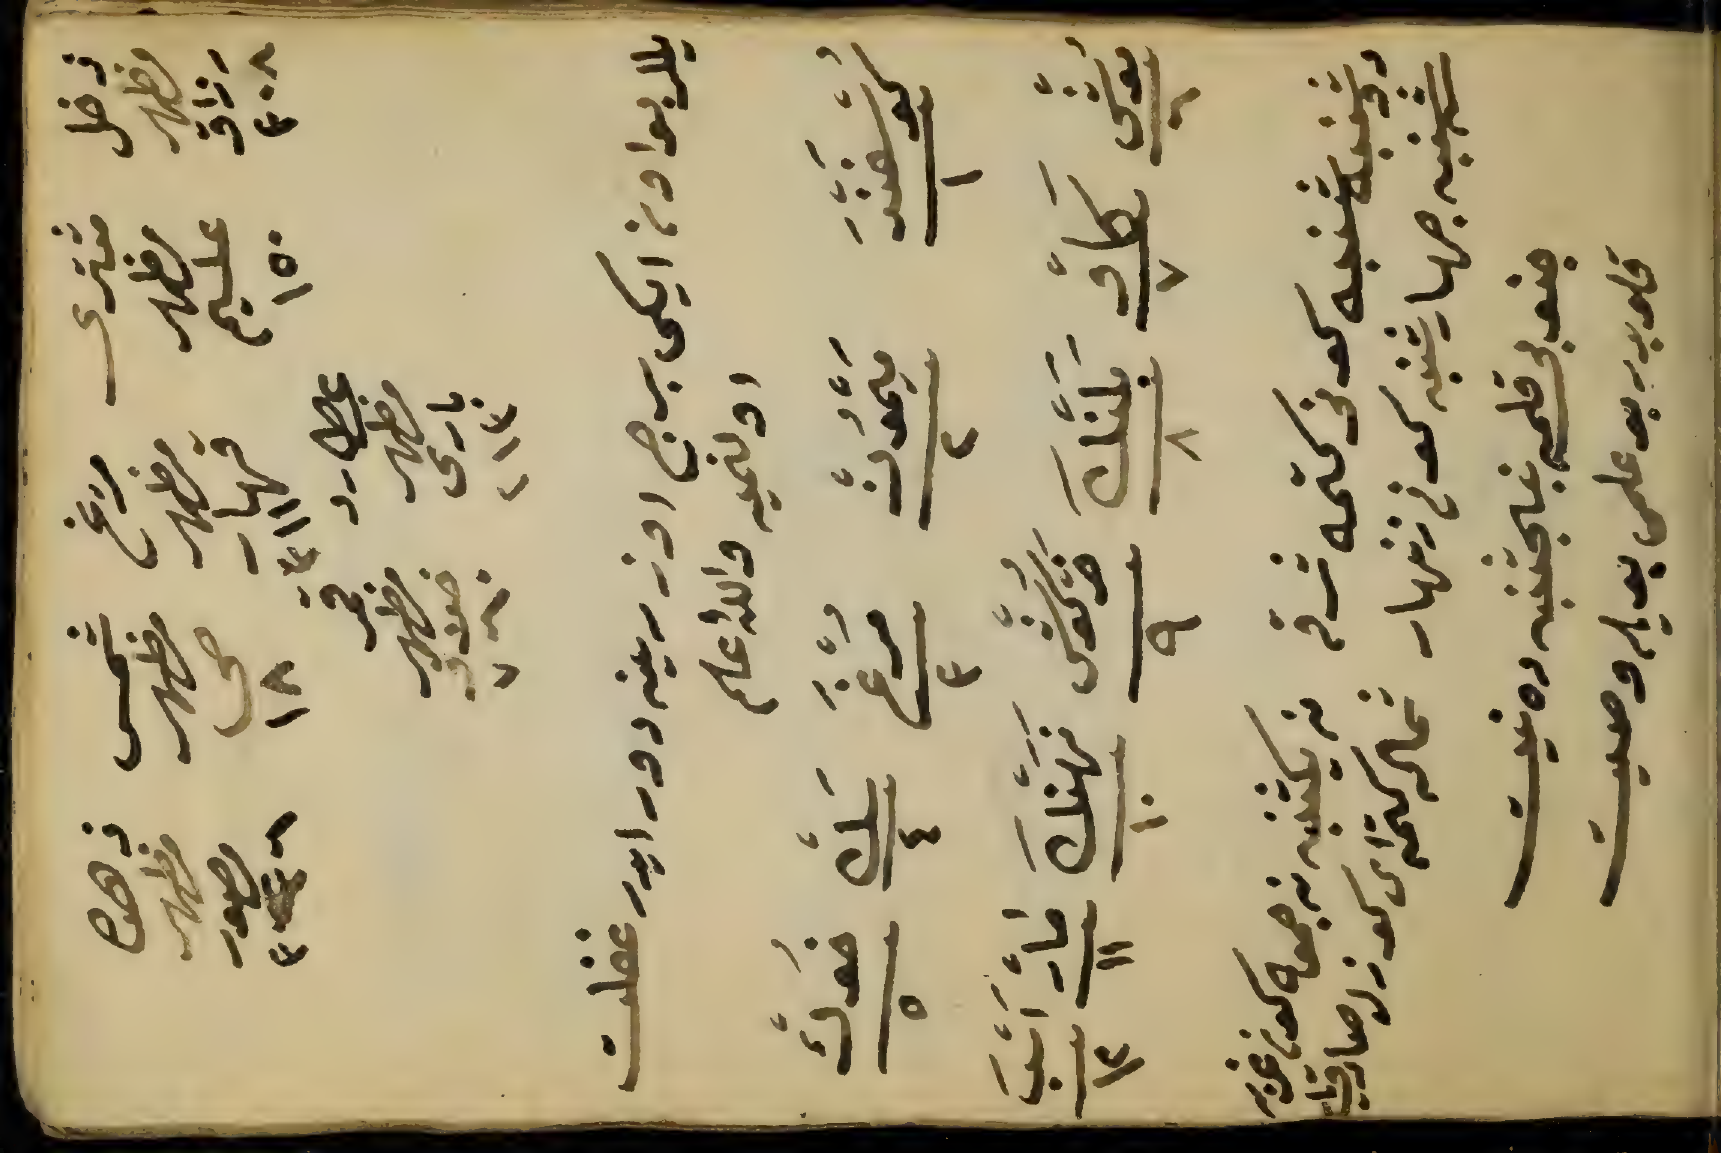 زحل مشتری مریخ شمس زهره
مظهر مظهر مظهر مظهر مظهر
رزاق علیم قهار حی مصور
٣٠٨ ١٥٠ ١٨
عطارد قمر
مظهر مظهر
باری
٢١٣
یلر بوادر ایکی برج اوزرینه دور ایدر غفلت
اولنمیه والله اعلم
گوسفند میمون مرغ سگ خوک
١ ٢ ٣ ٤ ٥
موش گاو پلنگ خرگوش نهنگ مار اسب
٦ ٧ ٨ ٩ ١٠ ١١ ١٢
دوشنبه شنبه کونی کتمه شرقه نه یکشنبه نه جمعه کون غربه
سه شنبه چهارشنبه کون زنهار شماله کتمه ای کوزل
جنوبی قلمه پنجشنبه ده نیت
قلوبدر بو علمی بویله وصیت